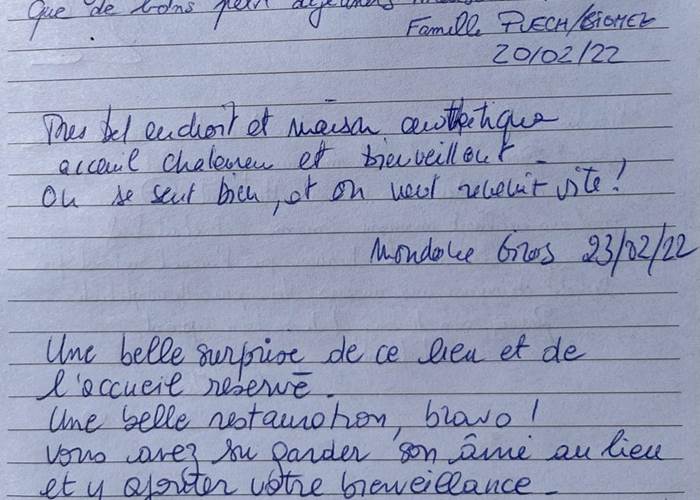 Que de bons petit déjeuners
Famille PUECH/
20/02/22
Très bel endroit et maison authentique
acceuil chaleureu et bienveillant.
On se sent bien, et on veut revenir vite!
Gros 23/02/22
Une belle surprise de ce lieu et de
l'accueil reservé.
Une belle restauration, bravo!
Vous avez su garder son âme au lieu
et y ajouter votre bienveillance.